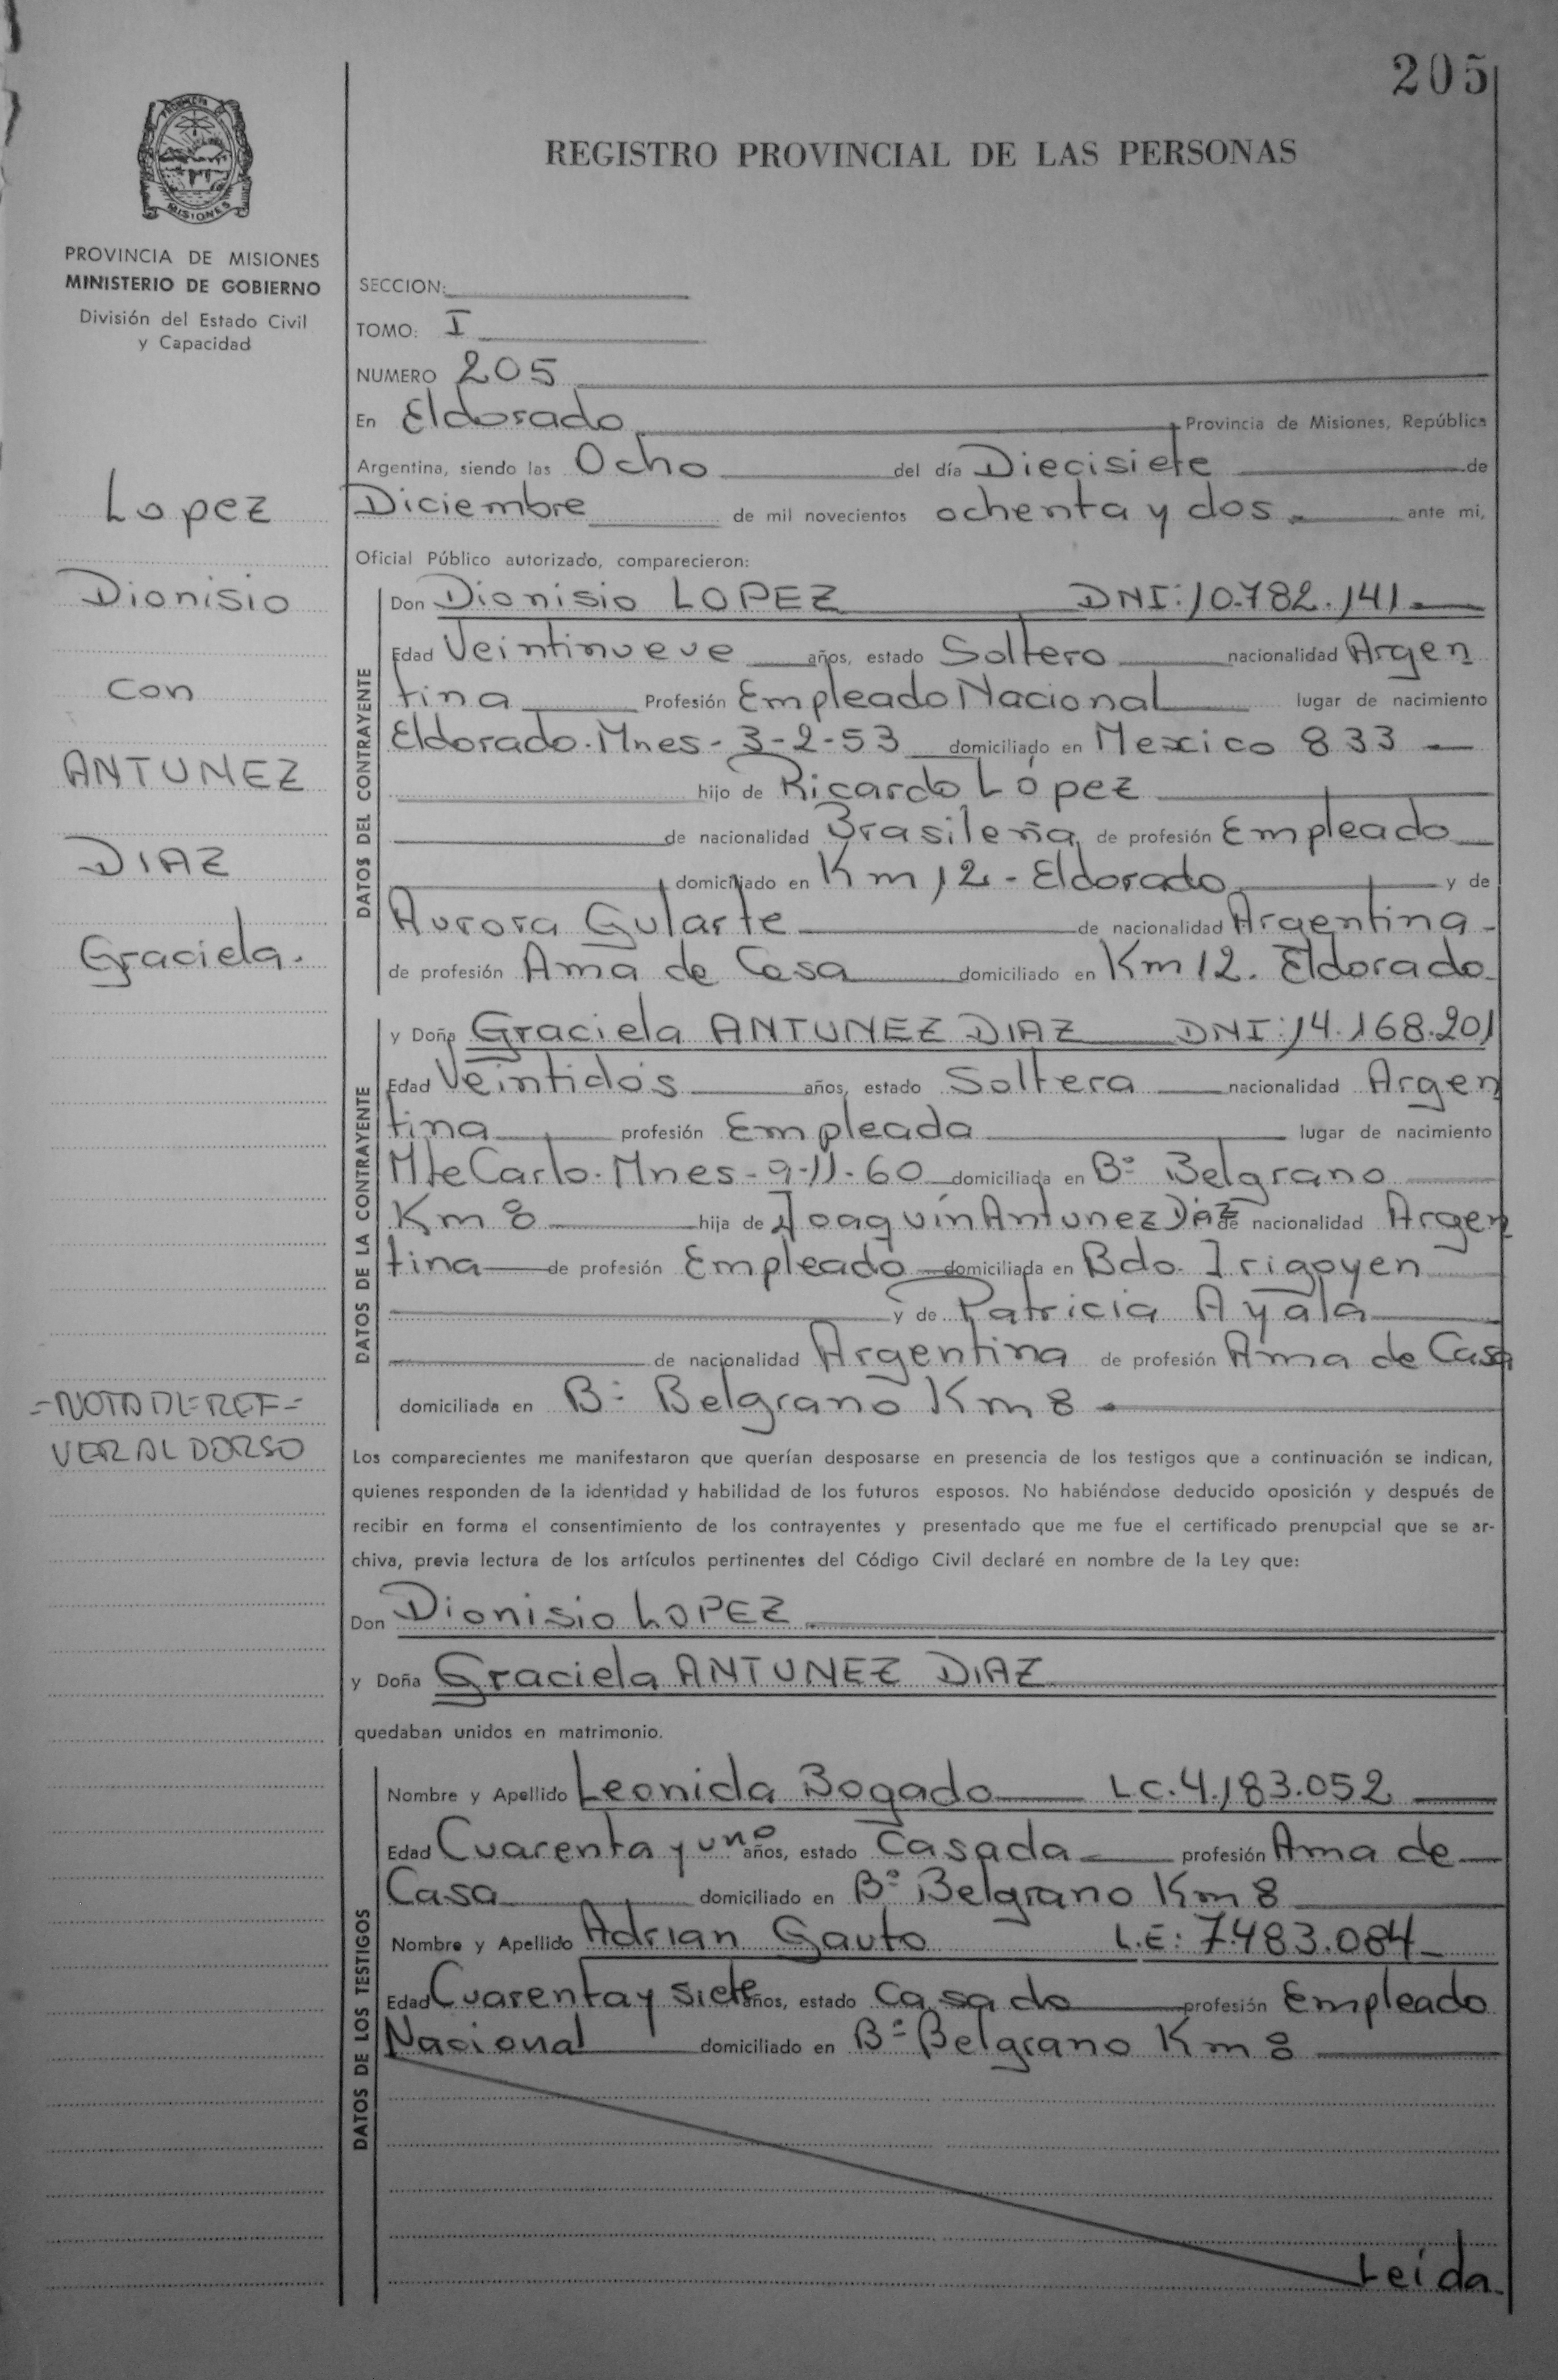 205
REGISTRO PROVINCIAL DE LAS PERSONAS
PROVINCIA DE
MISIONES
PROVINCIA DE MISIONES
MINISTERIO DE GOBIERNO
División del Estado Civil
y Capacidad
SECCION:
TOMO: I
NUMERO 205
En Eldorado Provincia de Misiones, República
Argentina, siendo las Ocho del día Diecisiete de
Diciembre de mil novecientos ochenta y dos ante mi,
Oficial Público autorizado, comparecieron:
Lopez
Dionisio
con
ANTUNEZ
DIAZ
Graciela.
=NOTA DE REF=
VER AL DORSO
DATOS DEL CONTRAYENTE
Don Dionisio LOPEZ DNI:10.782.141
Edad Veintinueve años, estado Soltero nacionalidad Argen
tina Profesión Empleado Nacional lugar de nacimiento
Eldorado. Mnes - 3-2-53 domiciliado en Mexico 833
hijo de Ricardo López
de nacionalidad Brasileña de profesión Empleado
domiciliado en Km 12 - Eldorado y de
Aurora Gularte de nacionalidad Argentina -
de profesión Ama de Casa domiciliado en Km 12. Eldorado
DATOS DE LA CONTRAYENTE
y Doña Graciela ANTUNEZ DIAZ DNI:14.168.201
Edad Veintidós años, estado Soltera nacionalidad Argen
tina profesión Empleada lugar de nacimiento
Mte Carlo. Mnes - 9-11-60 domiciliada en Bº Belgrano
Km 8 hija de Joaquín Antunez Diaz de nacionalidad Argen
tina de profesión Empleado domiciliada en Bdo. Irigoyen
y de Patricia Ayala
de nacionalidad Argentina de profesión Ama de Casa
domiciliada en Bº Belgrano Km 8
Los comparecientes me manifestaron que querían desposarse en presencia de los testigos que a continuación se indican,
quienes responden de la identidad y habilidad de los futuros esposos. No habiéndose deducido oposición y después de
recibir en forma el consentimiento de los contrayentes y presentado que me fue el certificado prenupcial que se ar-
chiva, previa lectura de los artículos pertinentes del Código Civil declaré en nombre de la Ley que:
Don Dionisio LOPEZ
y Doña Graciela ANTUNEZ DIAZ
quedaban unidos en matrimonio.
DATOS DE LOS TESTIGOS
Nombre y Apellido Leonida Bogado L.C. 4.183.052
Edad Cuarenta y uno años, estado Casada profesión Ama de
Casa domiciliado en Bº Belgrano Km 8
Nombre y Apellido Adrian Gauto L.E: 7.483.084
Edad Cuarenta y siete años, estado Casado profesión Empleado
Nacional domiciliado en Bº Belgrano Km 8
Leída.